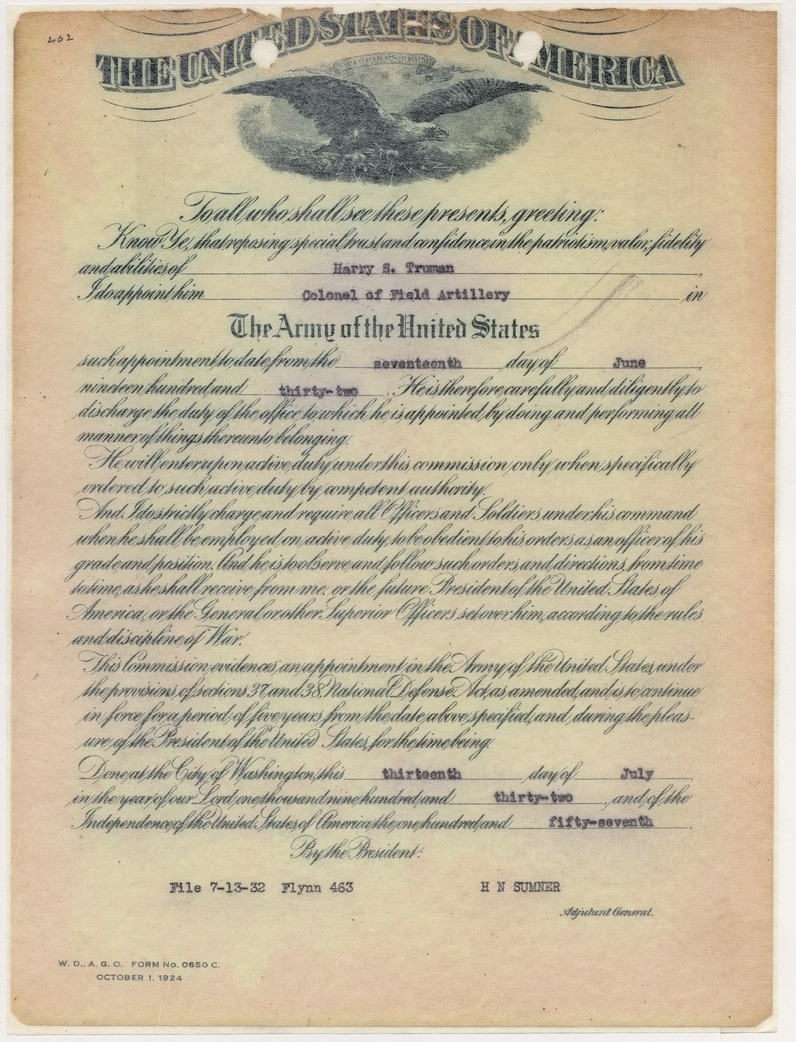 462
THE UNITED STATES OF AMERICA
To all who shall see these presents, greeting:
Know Ye, that reposing special trust and confidence in the patriotism, valor, fidelity
and abilities of Harry S. Truman ,
I do appoint him Colonel of Field Artillery in
The Army of the United States
such appointment to date from the seventeenth day of June ,
nineteen hundred and thirty-two . He is therefore carefully and diligently to
discharge the duty of the office to which he is appointed by doing and performing all
manner of things thereunto belonging.
He will enter upon active duty under this commission only when specifically
ordered to such active duty by competent authority.
And I do strictly charge and require all Officers and Soldiers under his command
when he shall be employed on active duty, to be obedient to his orders as an officer of his
grade and position. And he is to observe and follow such orders and directions, from time
to time, as he shall receive from me, or the future President of the United States of
America, or the General or other Superior Officers set over him, according to the rules
and discipline of War.
This Commission evidences an appointment in the Army of the United States, under
the provisions of sections 37 and 38, National Defense Act, as amended, and is to continue
in force for a period of five years from the date above specified, and during the pleas-
ure of the President of the United States, for the time being.
Done at the City of Washington, this thirteenth day of July ,
in the year of our Lord one thousand nine hundred and thirty-two , and of the
Independence of the United States of America the one hundred and fifty-seventh .
By the President:
File 7-13-32 Flynn 463 H N SUMNER
Adjutant General.
W. D., A. G. O. FORM No. 0650 C.
OCTOBER 1, 1924